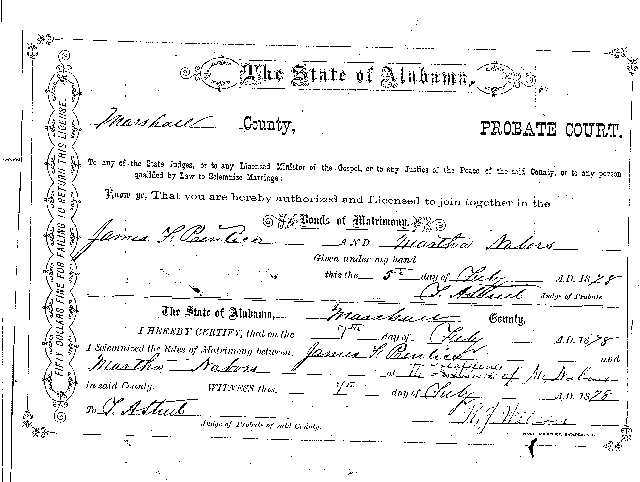 The State of Alabama,
Marshall County, PROBATE COURT.
To any of the State Judges, or to any Licensed Minister of the Gospel, or to any Justice of the Peace of the said County, or to any person
qualified by Law to Solemnize Marriage:
Know ye, That you are hereby authorized and Licensed to join together in the
Bonds of Matrimony,
James F. AND Martha Nabors
Given under my hand
this the 5th day of July A.D. 1878
Judge of Probate
The State of Alabama, Marshall County.
I HEREBY CERTIFY, that on the 7th day of July A.D. 1878
I Solemnized the Rites of Matrimony between, James F. and
Martha Nabors at of Nabors
in said County. WITNESS this 7th day of July A.D. 1878
To
Judge of Probate of said County.
FIFTY DOLLARS FINE FOR FAILING TO RETURN THIS LICENSE.